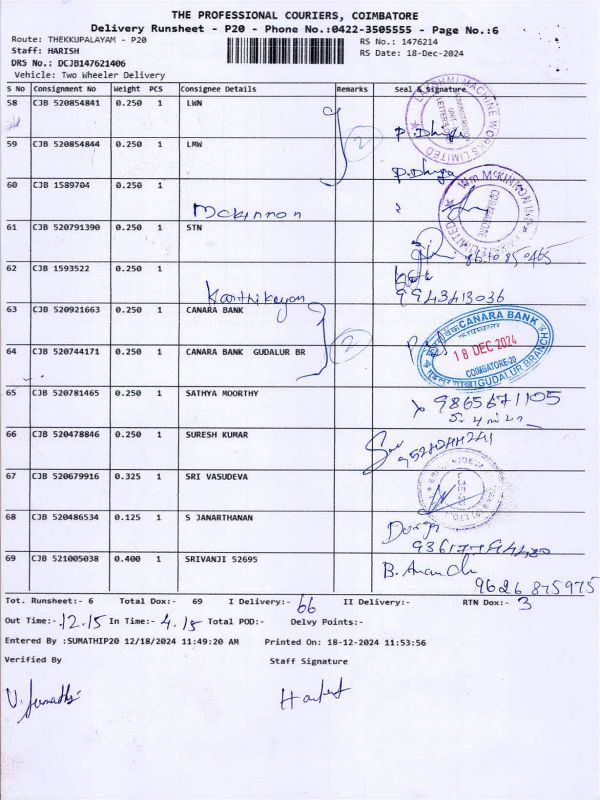 THE PROFESSIONAL COURIERS, COIMBATORE
Delivery Runsheet - P20 - Phone No.:0422-3505555 - Page No.:6
Route: THEKKUPALAYAM - P20
RS No.: 1476214
Staff: HARISH
RS Date: 18-Dec-2024
DRS No.: DCJB147621406
Vehicle: Two Wheeler Delivery
S No Consignment No Weight PCS Consignee Details Remarks Seal & Signature
58 CJB 520854841 0.250 1 LWN
P. Dhuga
59 CJB 520854844 0.250 1 LMW
2
P. Dhuga
60 CJB 1589704 0.250 1
Mckinnon
61 CJB 520791390 0.250 1 STN
62 CJB 1593522 0.250 1
Karthikeyan
9943413036
63 CJB 520921663 0.250 1 CANARA BANK
CANARA BANK
18 DEC 2024
COIMBATORE-20
GUDALUR BRANCH
2
64 CJB 520744171 0.250 1 CANARA BANK GUDALUR BR
65 CJB 520781465 0.250 1 SATHYA MOORTHY
9865671105
66 CJB 520478846 0.250 1 SURESH KUMAR
67 CJB 520679916 0.325 1 SRI VASUDEVA
68 CJB 520486534 0.125 1 S JANARTHANAN
69 CJB 521005038 0.400 1 SRIVANJI 52695
B. Anandh
9626875975
Tot. Runsheet:- 6 Total Dox:- 69 I Delivery:- 66 II Delivery:- RTN Dox:- 3
Out Time:- 12.15 In Time:- 4.15 Total POD:- Delvy Points:-
Entered By :SUMATHIP20 12/18/2024 11:49:20 AM Printed On: 18-12-2024 11:53:56
Verified By Staff Signature
V. Sumathi